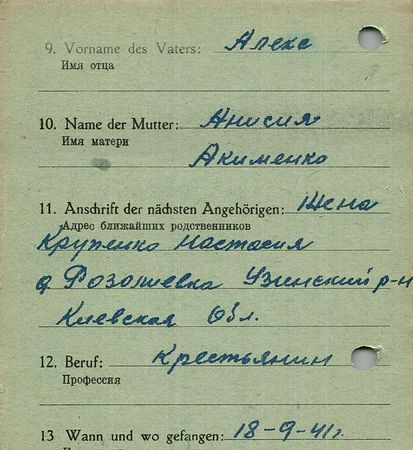 9. Vorname des Vaters: Алекс
Имя отца
10. Name der Mutter: Анисия
Имя матери
Акименко
11. Anschrift der nächsten Angehörigen: Жена
Адрес ближайших родственников
Крупенко Настасия
д Розалиевка Узинский р-н
Киевская Обл.
12. Beruf: Крестьянин
Профессия
13 Wann und wo gefangen: 18-9-41г.